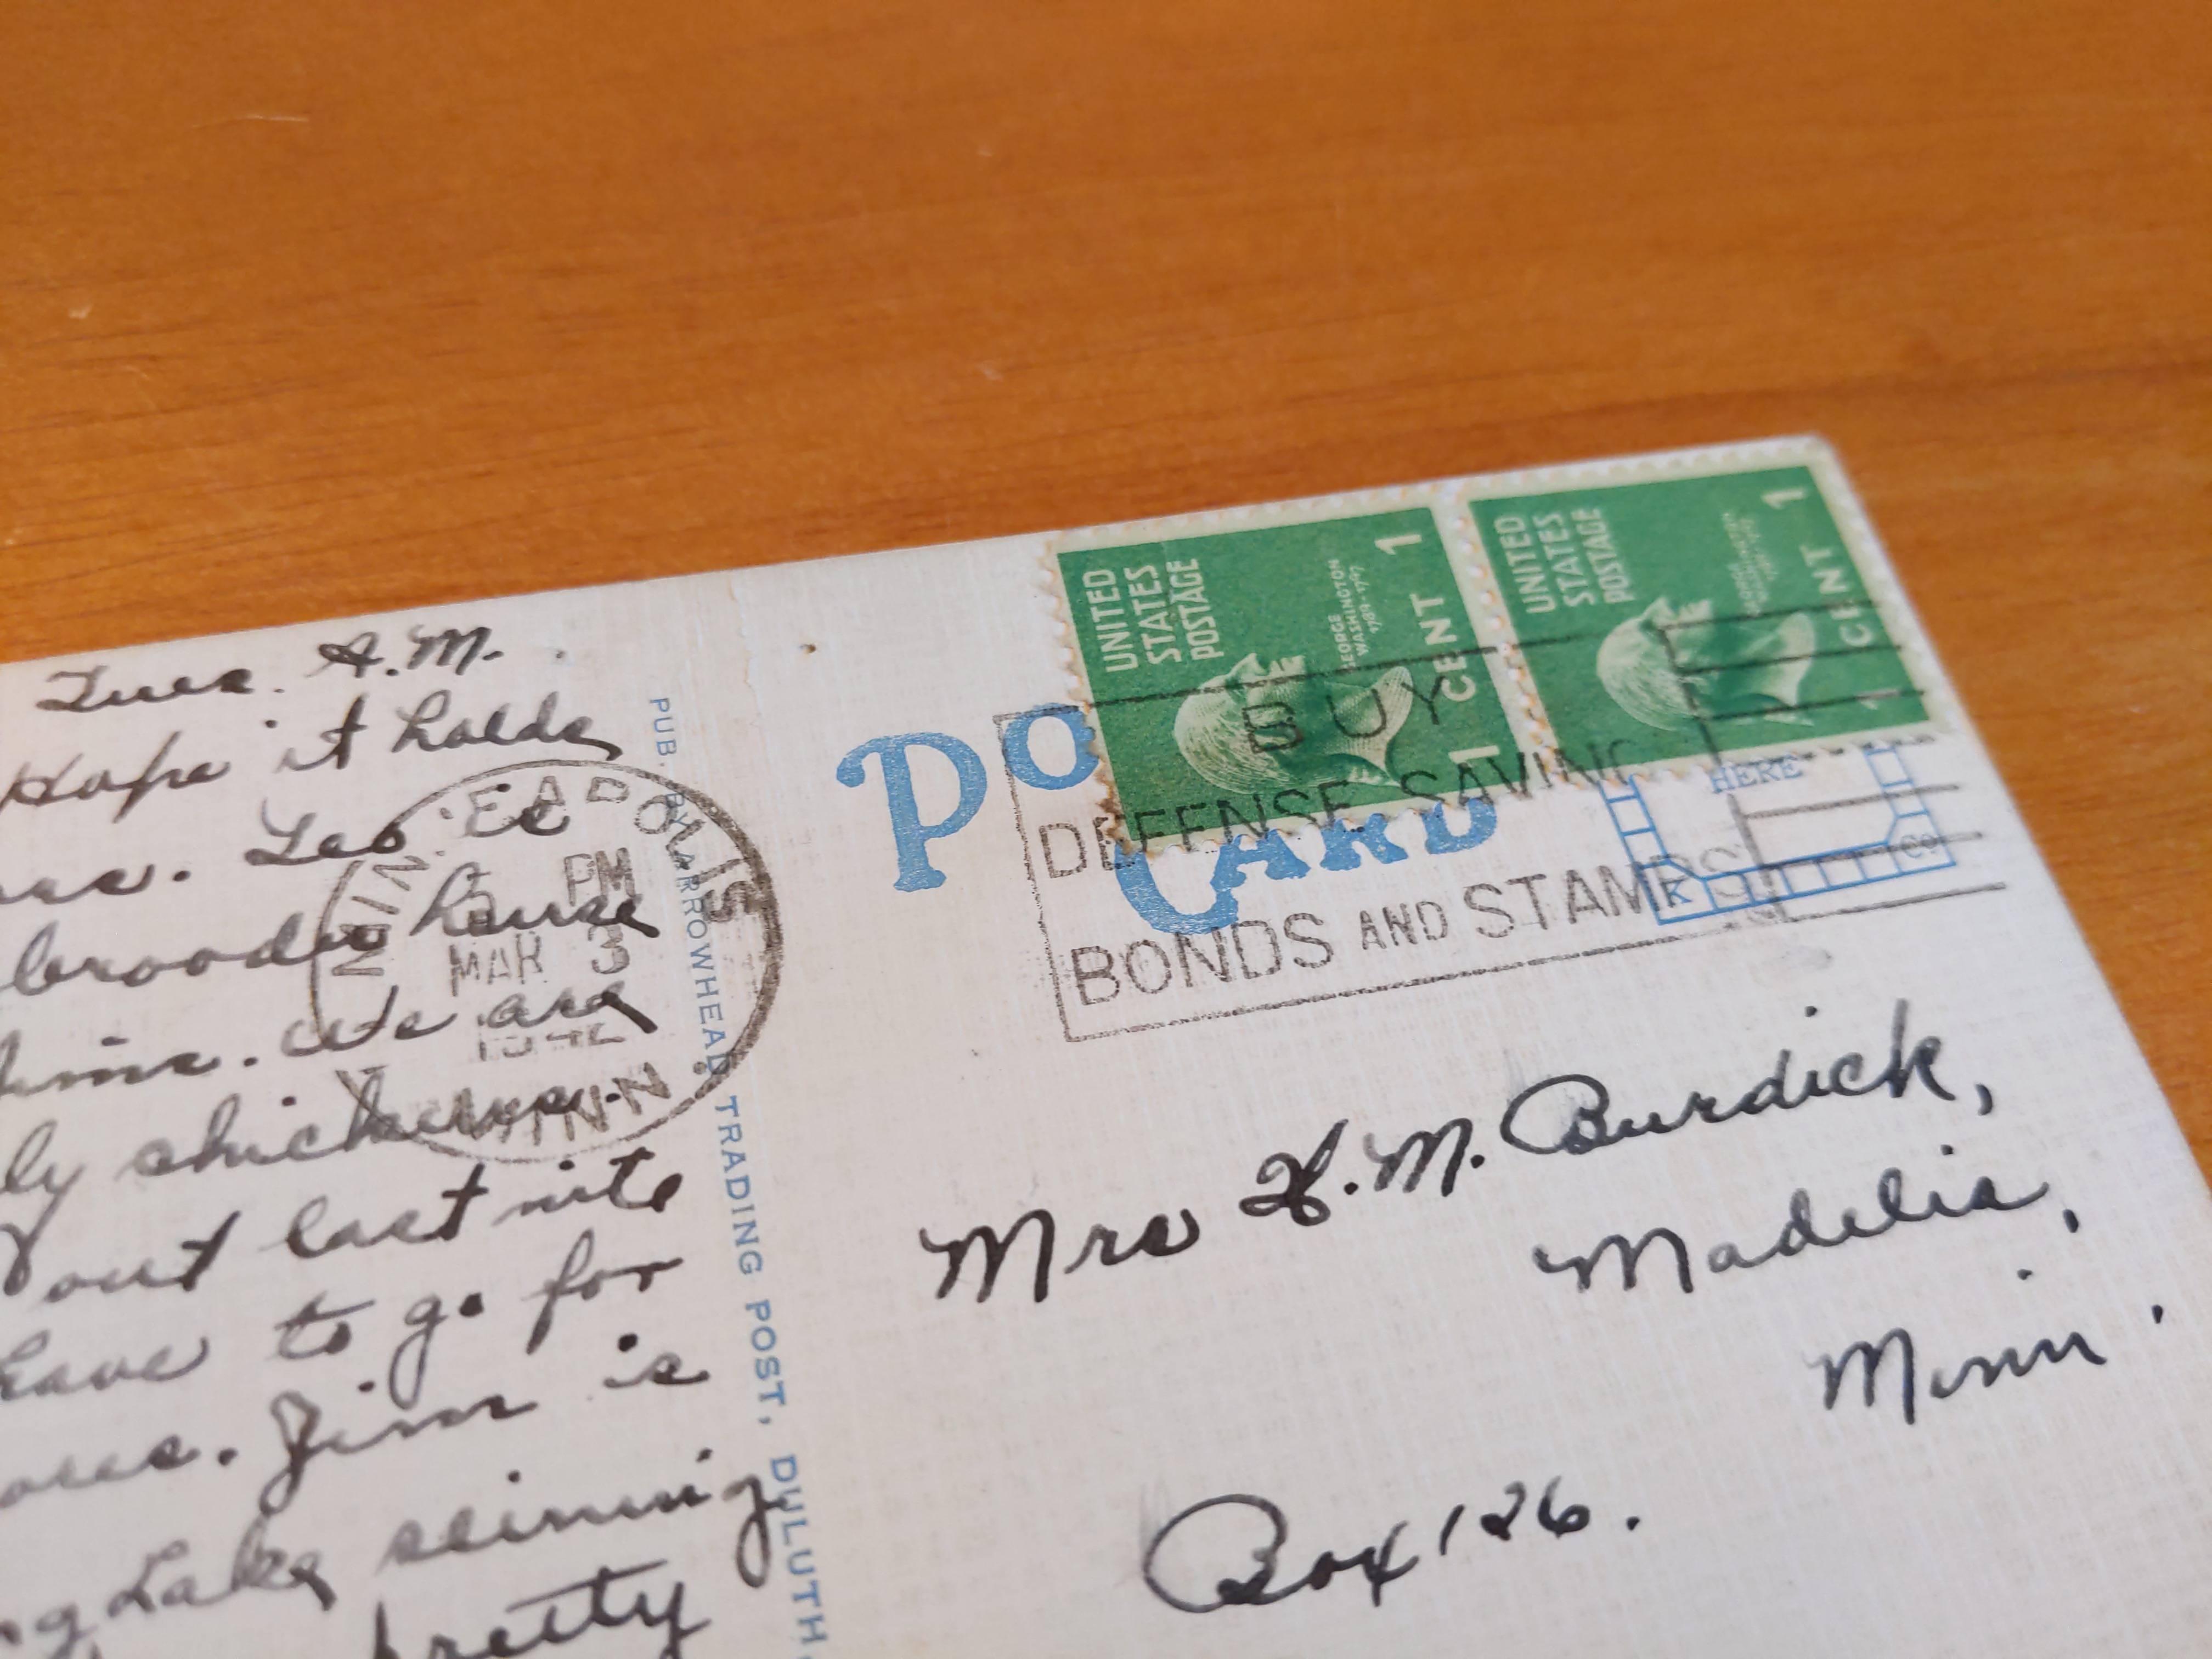 Tues. A.M.
Hope it holds
. Leo is
brooder house
time. We are
ly chickens.
out last nite
have to go for
. Jim is
g Lake seining
pretty
MINNEAPOLIS
PM
MAR 3
1942
MINN
PUB. BY ARROWHEAD TRADING POST, DULUTH
PO
CARD
UNITED
STATES
POSTAGE
GEORGE
WASHINGTON
1789-1797
1
CENT
1
UNITED
STATES
POSTAGE
GEORGE
WASHINGTON
1789-1797
1
CENT
1
BUY
DEFENSE SAVING
BONDS AND STAMPS
HERE
K
Co
Mrs H. M. Burdick,
Madelia,
Minn.
Box 126.